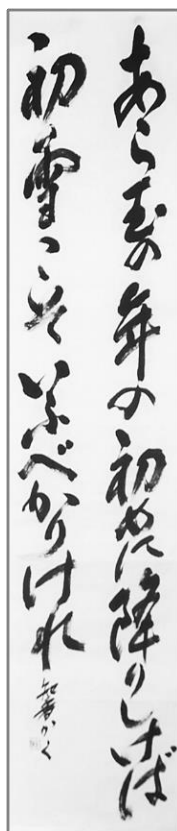 あら玉の年の初めに降りしけば
初雪とこそいふべかりけれ かく